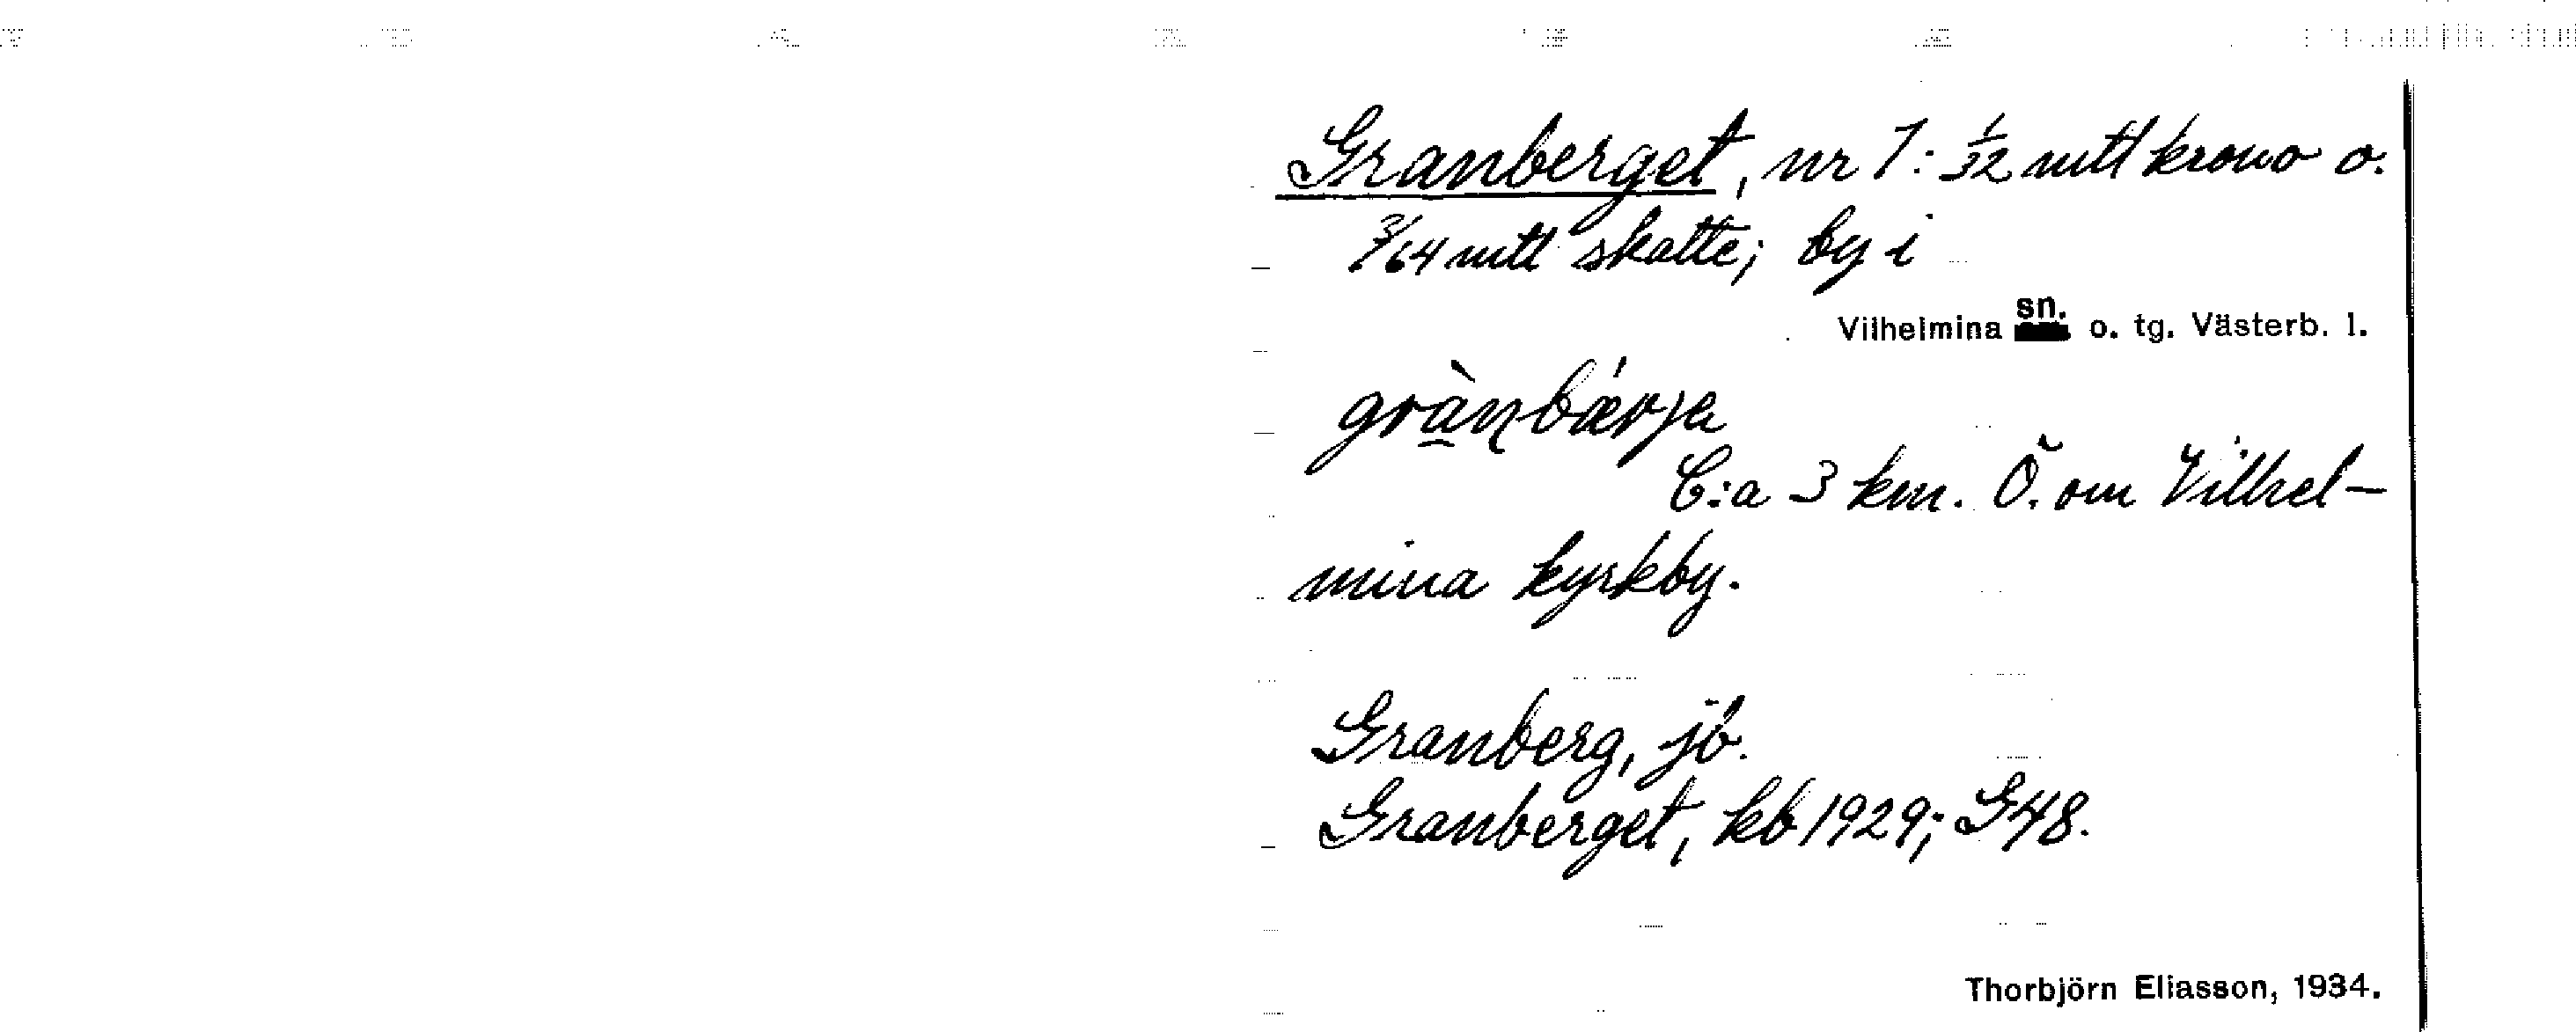 Granberget, nr 1: 1/32 mtl krono o.
3/64 mtl skatte; by i
Vilhelmina sn. o. tg. Västerb. l.
grànbárja
C:a 3 km. Ö. om Vilhel-
mina kyrkby.
Granberg, jb.
Granberget, kb 1929; G48.
Thorbjörn Eliasson, 1934.